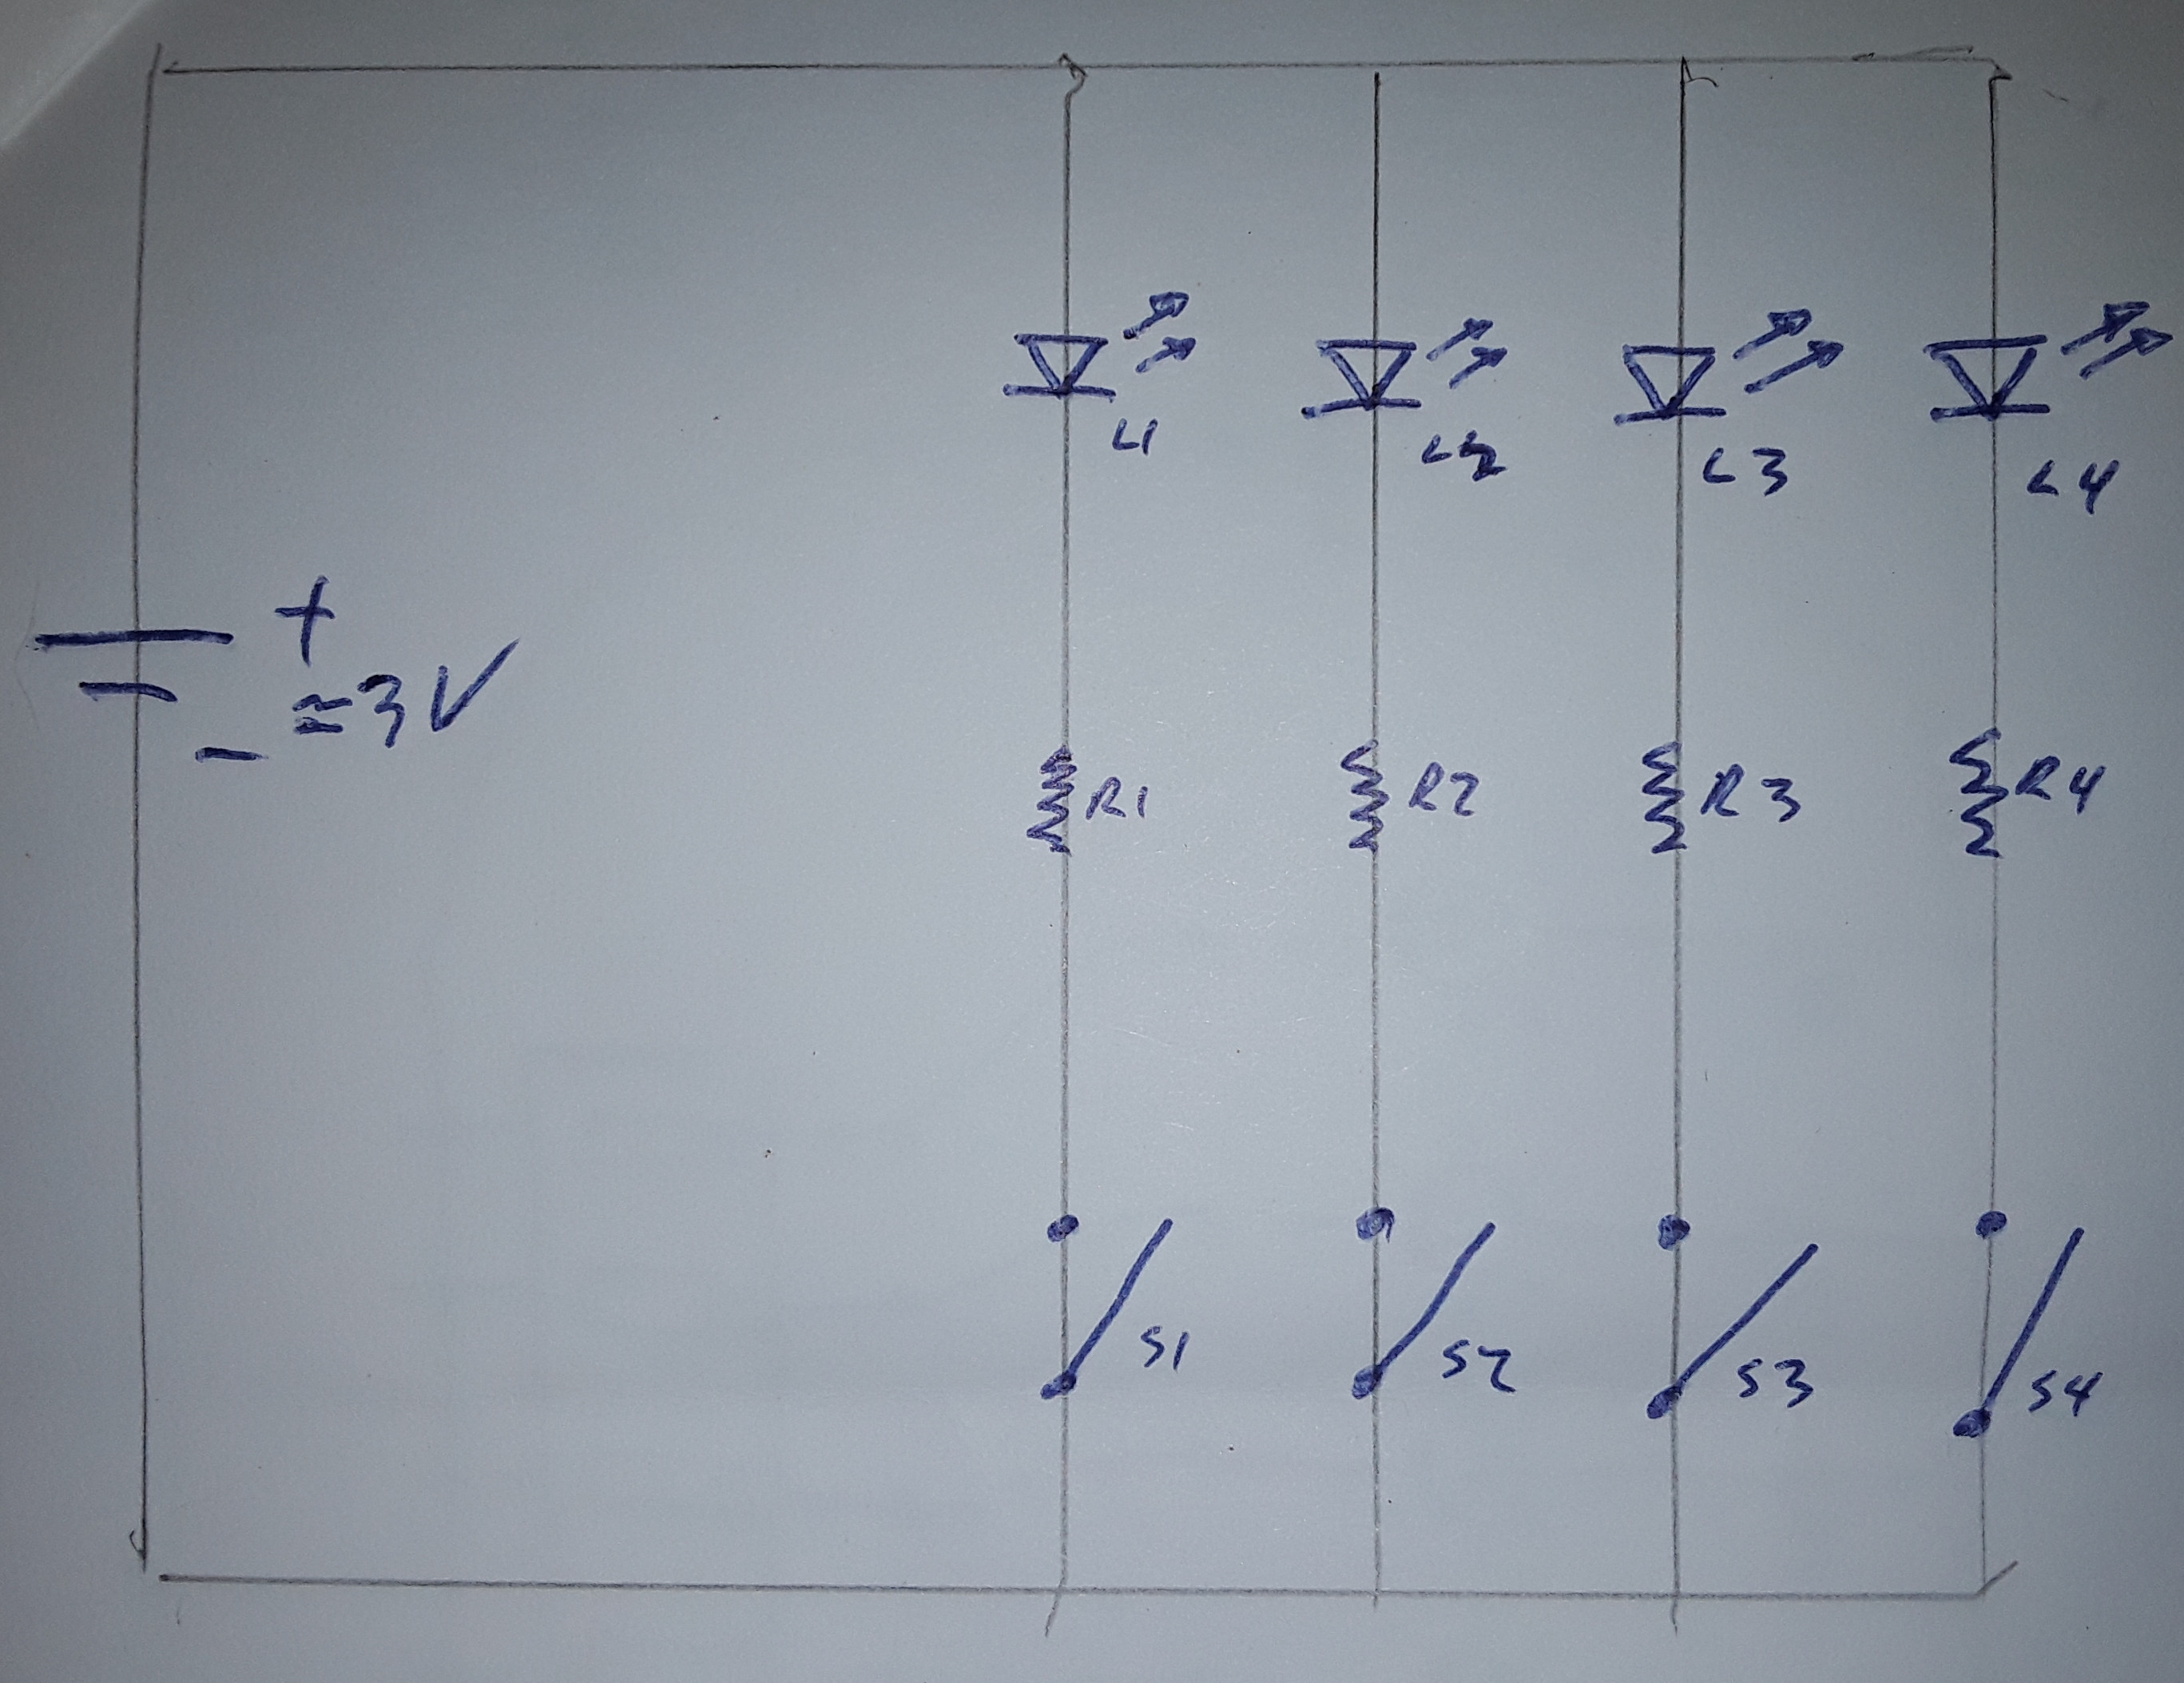 L1
L2
L3
L4
+
≃3V
−
R1
R2
R3
R4
S1
S2
S3
S4